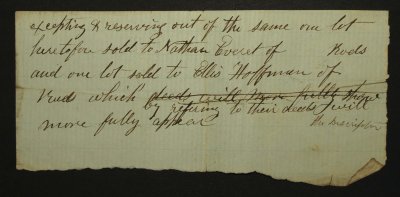 excepting & reserving out of the same one lot
heretofore sold to Nathan Everet of Rods
and one lot sold to Ellis Hoffman of
which deeds will more fully show
by refering to their deeds will
more fully appear the description